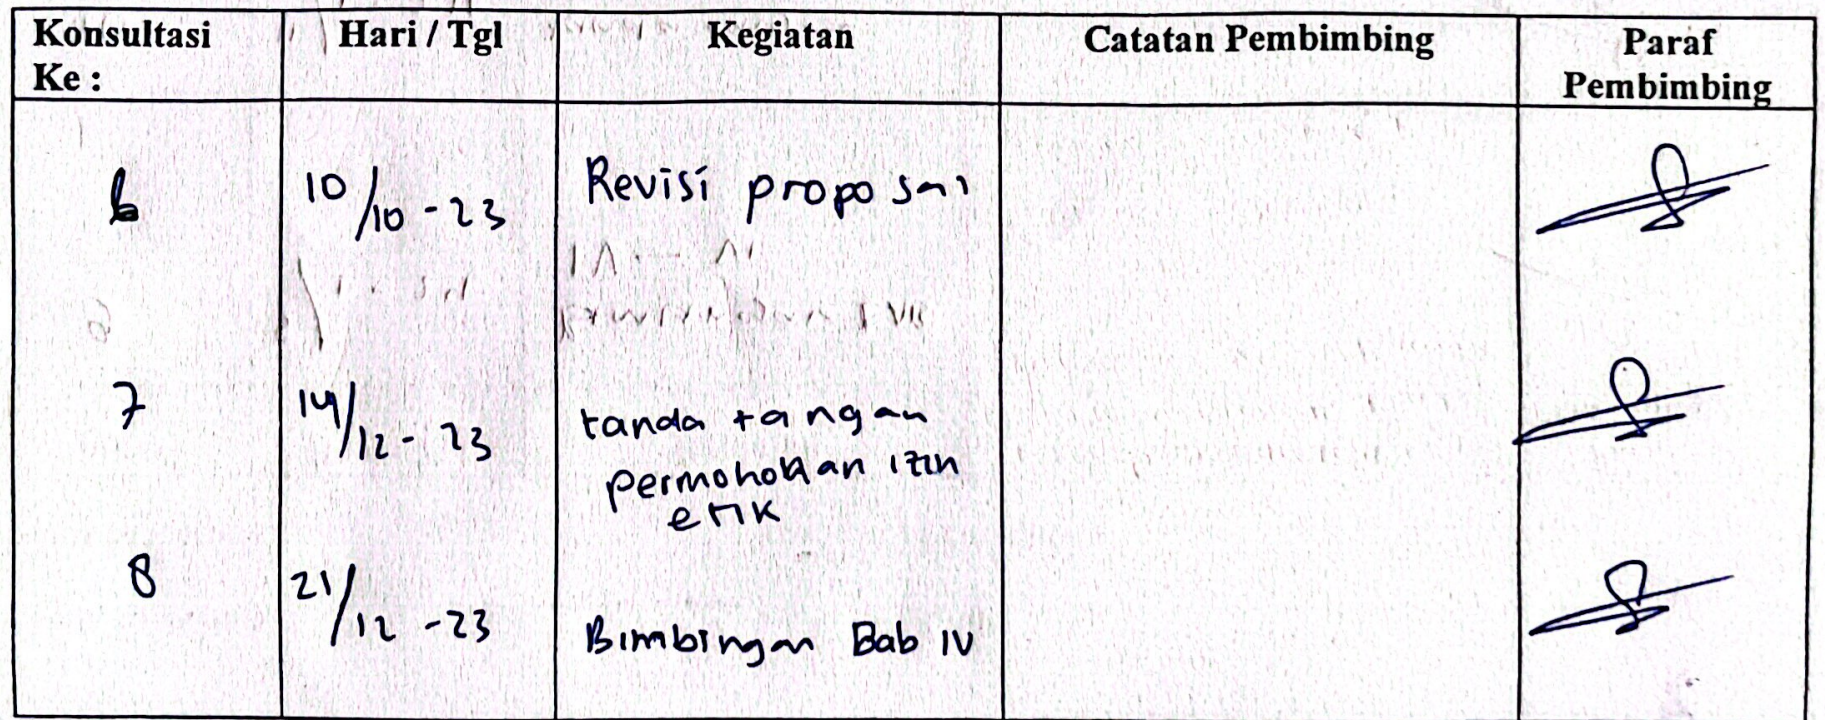 Konsultasi Ke : Hari / Tgl Kegiatan Catatan Pembimbing Paraf Pembimbing
6 10/10 - 23 Revisi proposal
7 14/12 - 23 tanda tangan
permohonan izin
etik
8 21/12 - 23 Bimbingan Bab IV